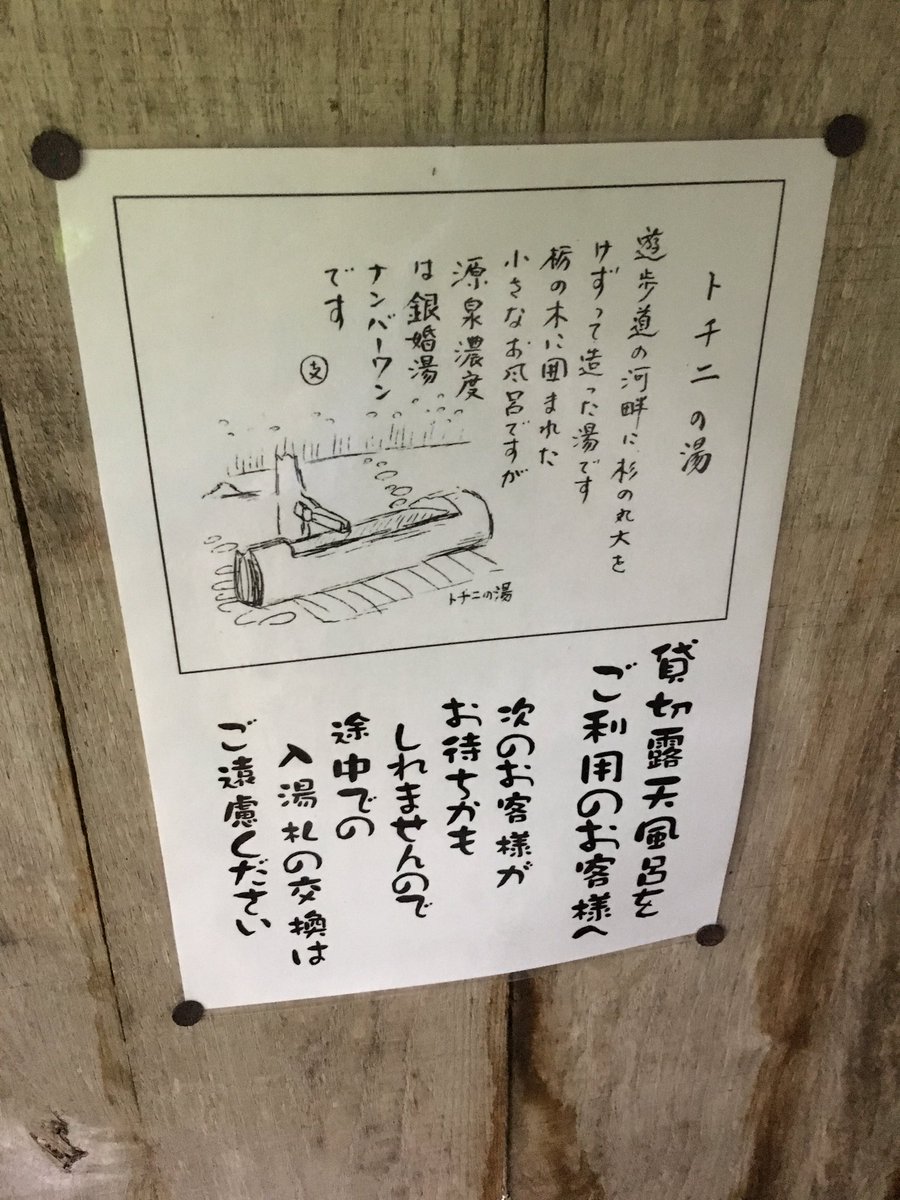 トチニの湯
遊歩道の河畔に、杉の丸太を
けずって造った湯です
栃の木に囲まれた
小さなお風呂ですが
源泉濃度
は銀婚湯
ナンバーワン
です
支
トチニの湯
貸切露天風呂を
ご利用のお客様へ
次のお客様が
お待ちかも
しれませんので
途中での
入湯札の交換は
ご遠慮ください